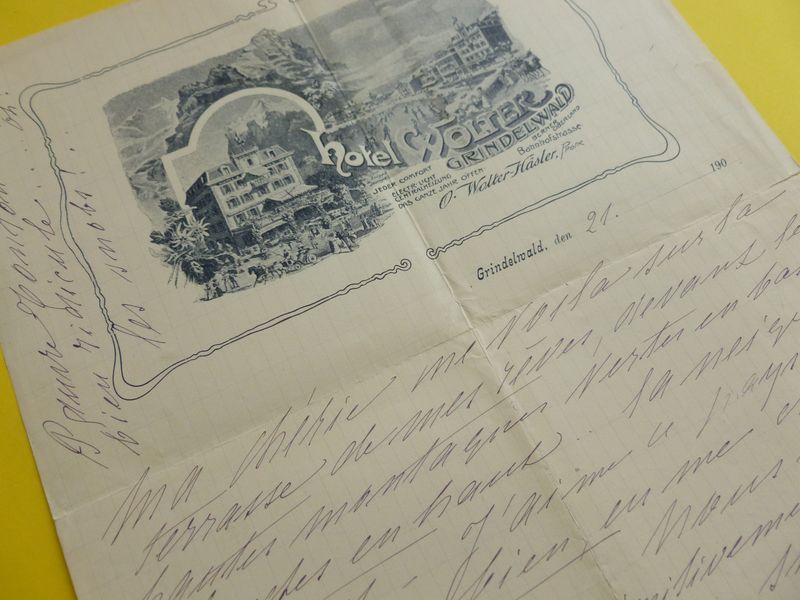 Hotel WOLTER
GRINDELWALD
BERNER OBERLAND
JEDER COMFORT
ELECTR. LICHT
CENTRALHEIZUNG
DAS GANZE JAHR OFFEN
Bahnhofstrasse
O. Wolter-Häsler, Propr.
190
Grindelwald, den 21.
Pauvre
bien ridicule
les snobs!..
Ma chérie me voilà sur la
terrasse de mes rêves, devant le
hautes montagnes vertes en bas
en haut... la neige
J'aime ce pays
bien en me
Nous